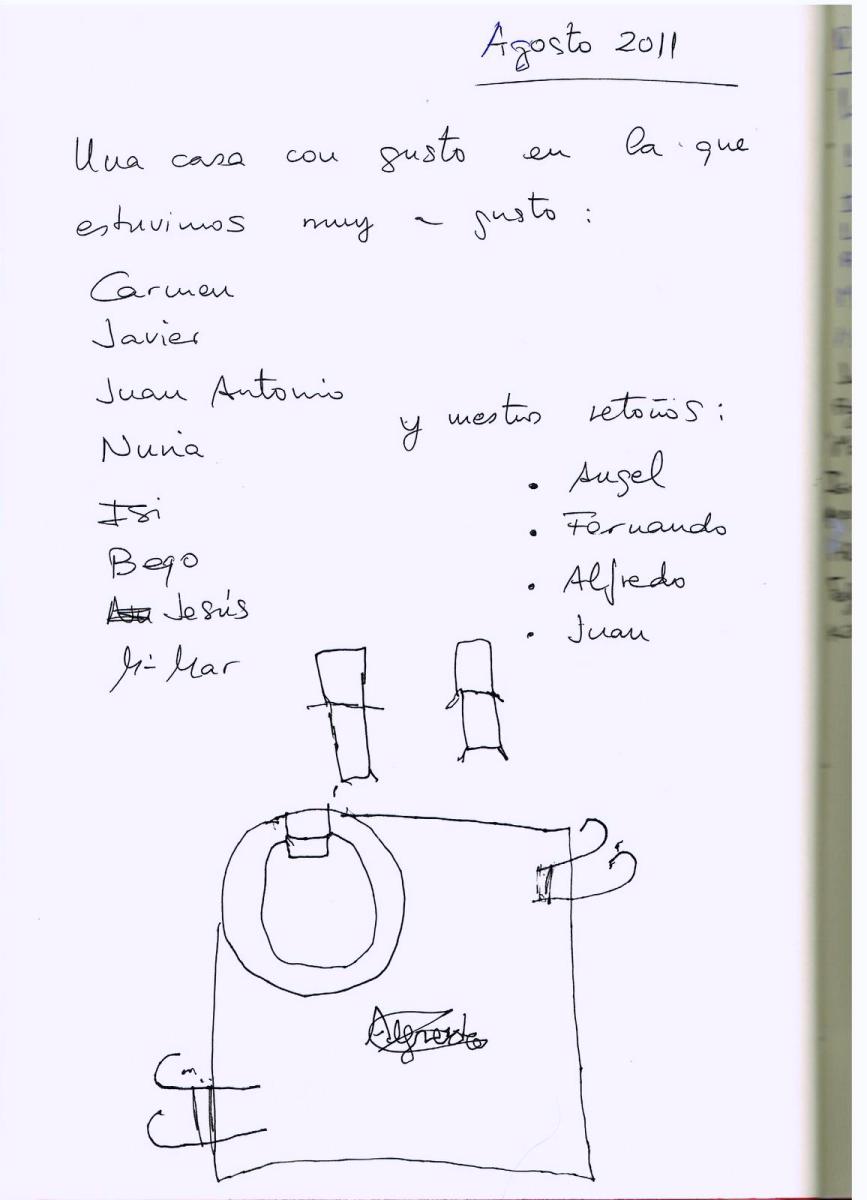 Agosto 2011
Una casa con gusto en la que
estuvimos muy a gusto:
Carmen
Javier
Juan Antonio
Nuria
Isi
Bego
Jesús
Mª Mar
y nuestros retoños:
· Angel
· Fernando
· Alfredo
· Juan